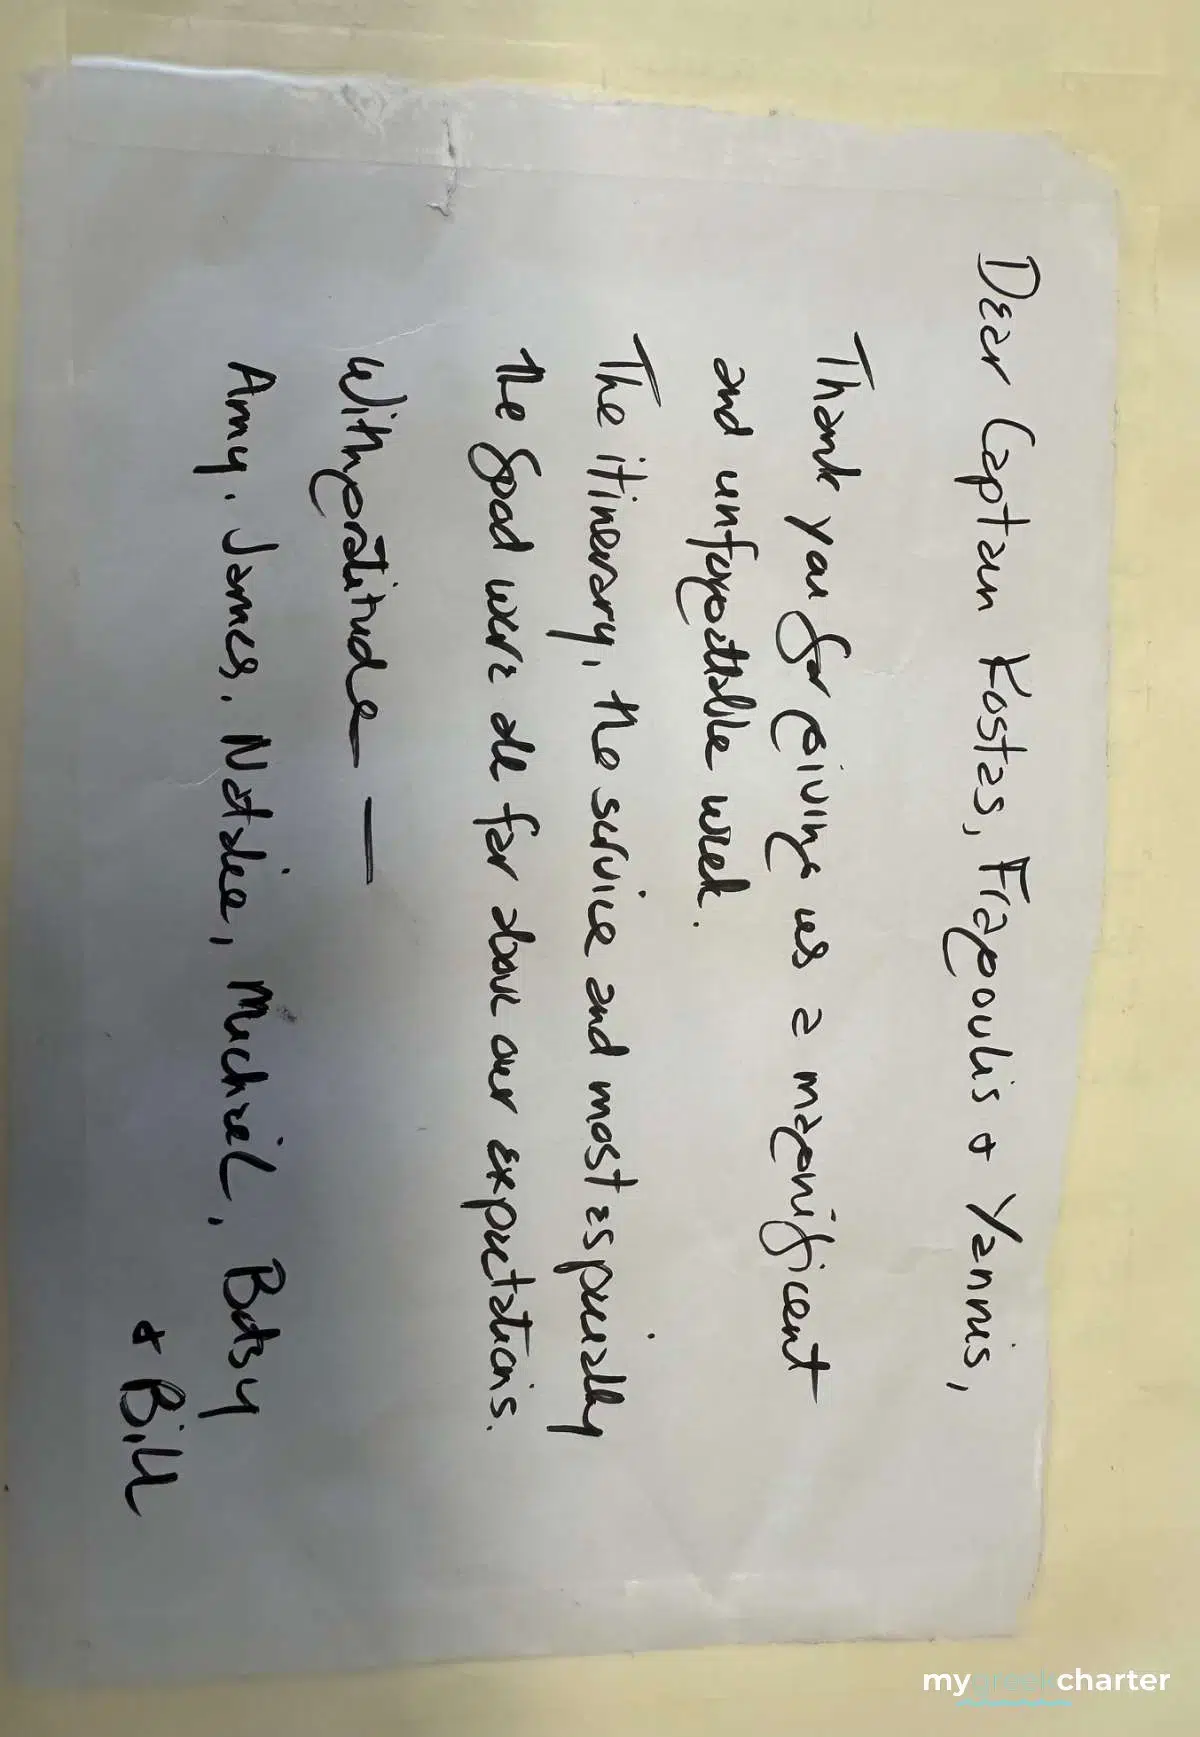 Dear Captain Kostas, Fragoulis + Yannis,
Thank you for giving us a magnificent
and unforgettable week.
The itinerary, the service and most especially
the food were all far above our expectations.
With gratitude —
Amy, James, Natalie, Michael, Betsy
+ Bill
mygreekcharter